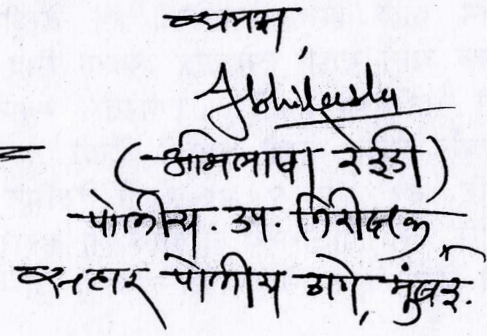 समक्ष,
Abhilasha
(अभिलाषा रेड्डी)
पोलीस. उप. निरीक्षक
पोलीस ठाणे, मुंबई.